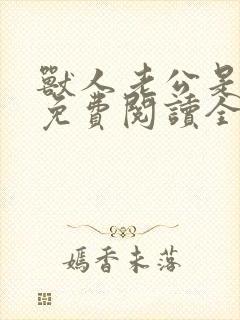 獸人老公是
免費閱讀全
嫣香未落